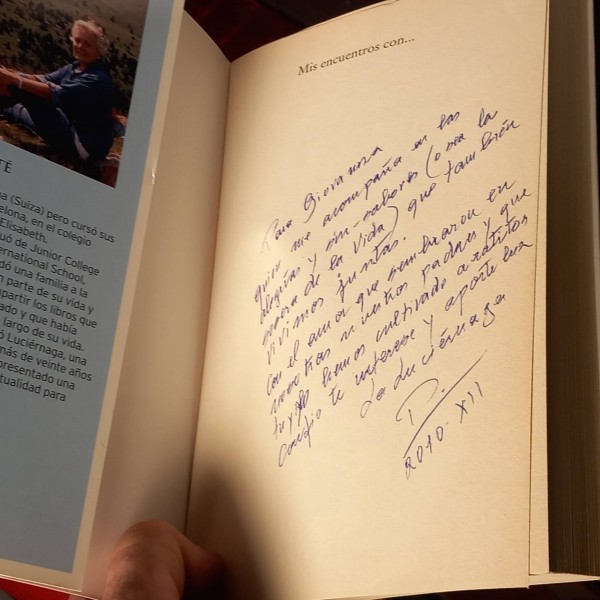 TÉ
a (Suiza) pero cursó sus
elona, en el colegio
Elisabeth.
uó de Junior College
ernational School,
dó una familia a la
n parte de su vida y
mpartir los libros que
ado y que había
largo de su vida.
ó Luciérnaga, una
más de veinte años
epresentado una
tualidad para
Mis encuentros con...
Para Giovanna
quien me acompaña en las
alegrías y sin-sabores (o sea la
de la vida) que también
vivimos juntas.
Con el amor que sembraron en
nosotras nuestros padres y que
tu y yo hemos cultivado a ratitos
te interese y aporte luz
La Luciérnaga
2010. XII